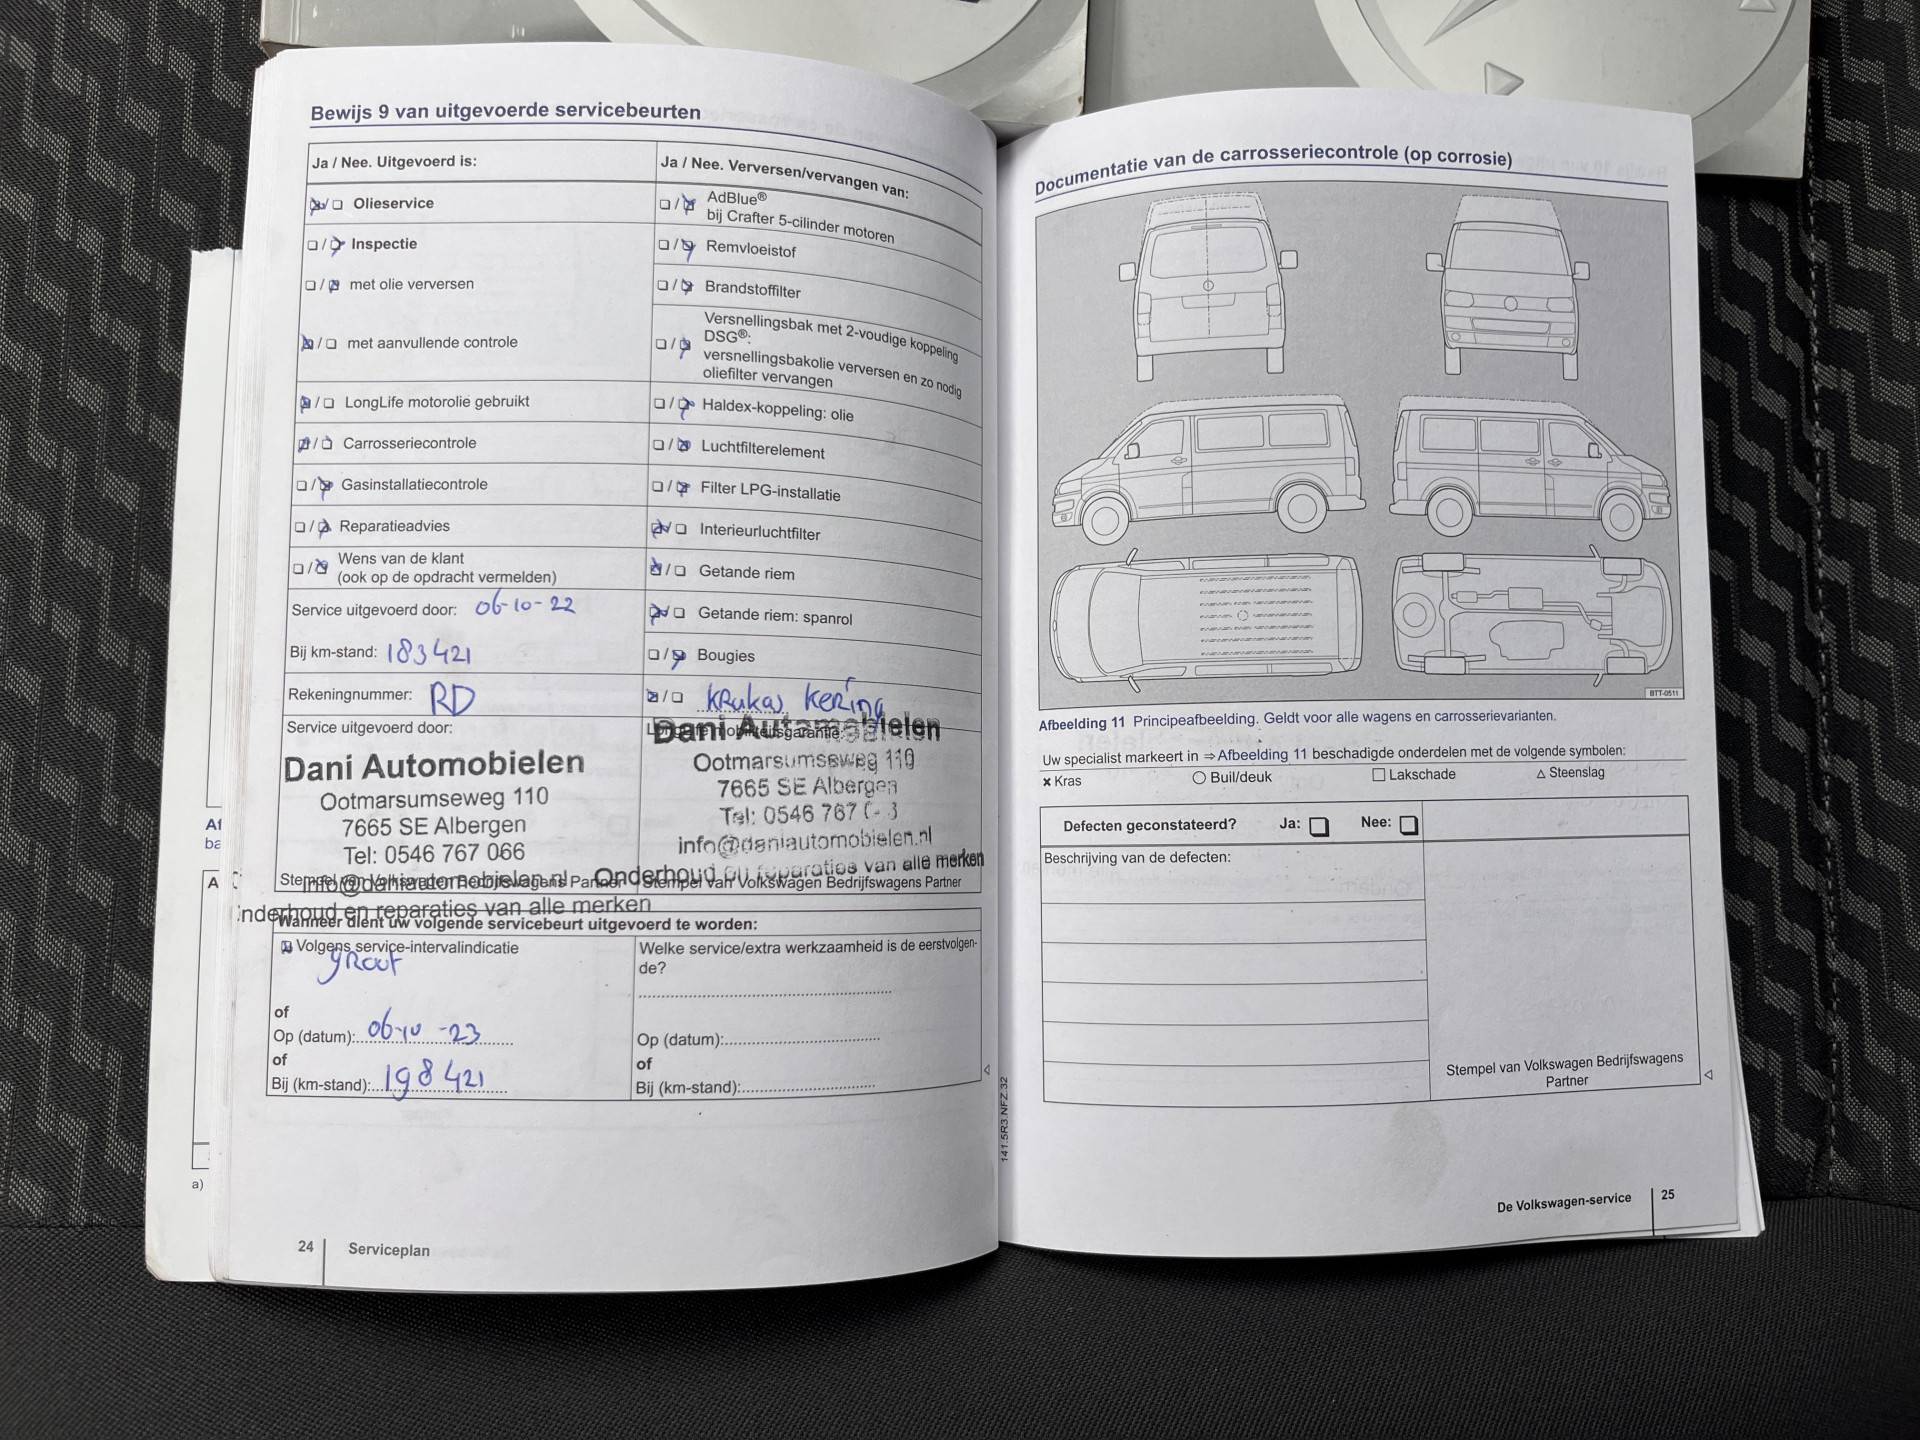 Bewijs 9 van uitgevoerde servicebeurten
Ja / Nee. Uitgevoerd is:
Olieservice
Inspectie
met olie verversen
met aanvullende controle
LongLife motorolie gebruikt
Carrosseriecontrole
Gasinstallatiecontrole
Reparatieadvies
Wens van de klant
(ook op de opdracht vermelden)
Service uitgevoerd door: 06-10-22
Bij km-stand: 183421
Rekeningnummer: RD
Service uitgevoerd door:
Dani Automobielen
Ootmarsumseweg 110
7665 SE Albergen
Tel: 0546 767 066
info@daniautomobielen.nl
Stempel van Volkswagen Bedrijfswagens Partner
Onderhoud en reparaties van alle merken
Ja / Nee. Verversen/vervangen van:
AdBlue®
bij Crafter 5-cilinder motoren
Remvloeistof
Brandstoffilter
Versnellingsbak met 2-voudige koppeling
DSG®:
versnellingsbakolie verversen en zo nodig
oliefilter vervangen
Haldex-koppeling: olie
Luchtfilterelement
Filter LPG-installatie
Interieurluchtfilter
Getande riem
Getande riem: spanrol
Bougies
KRukas kering
LongLife mobiliteitsgarantie
Dani Automobielen
Ootmarsumseweg 110
7665 SE Albergen
Tel: 0546 767
info@daniautomobielen.nl
Onderhoud en reparaties van alle merken
Stempel van Volkswagen Bedrijfswagens Partner
Wanneer dient uw volgende servicebeurt uitgevoerd te worden:
Volgens service-intervalindicatie
gRoot
of
Op (datum): 06-10-23
of
Bij (km-stand): 198421
Welke service/extra werkzaamheid is de eerstvolgen-
de?
Op (datum):
of
Bij (km-stand):
24 Serviceplan
141.5R3.NFZ.32
Documentatie van de carrosseriecontrole (op corrosie)
BTT-0511
Afbeelding 11 Principeafbeelding. Geldt voor alle wagens en carrosserievarianten.
Uw specialist markeert in ⇒ Afbeelding 11 beschadigde onderdelen met de volgende symbolen:
× Kras ○ Buil/deuk □ Lakschade △ Steenslag
Defecten geconstateerd? Ja: Nee:
Beschrijving van de defecten:
Stempel van Volkswagen Bedrijfswagens
Partner
De Volkswagen-service 25
Af
ba
A
a)